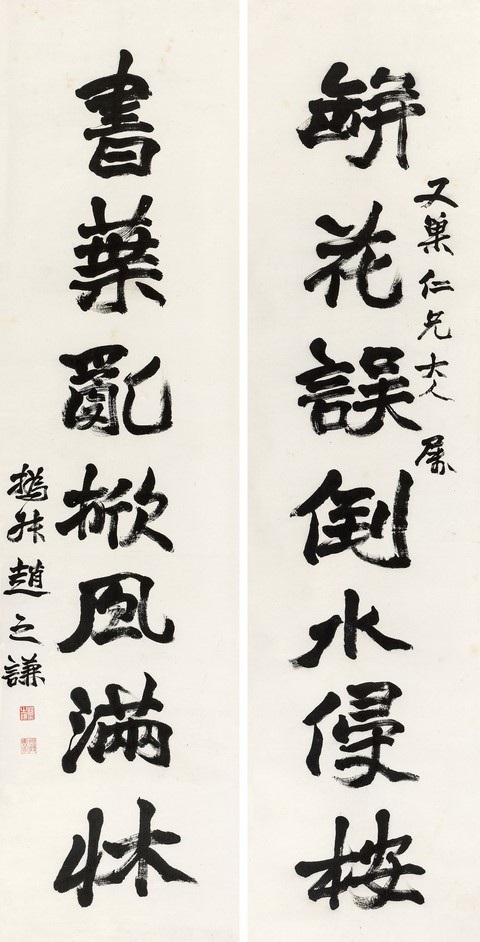 又巢仁兄大人屬
缾花誤倒水侵桉
書葉亂掀風滿牀
撝叔趙之謙